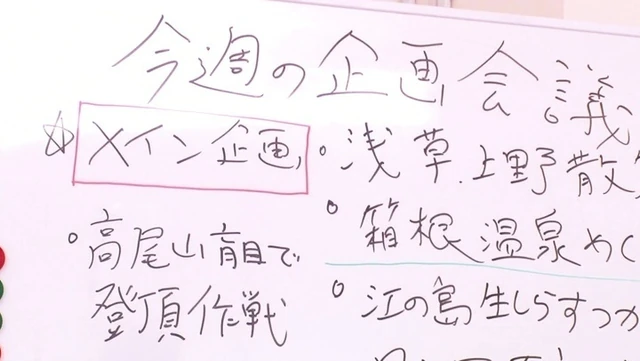 今週の企画会議
☆ メイン企画
・浅草.上野散
・箱根温泉めぐ
・高尾山盲目で
登頂作戦
・江の島生しらすつか